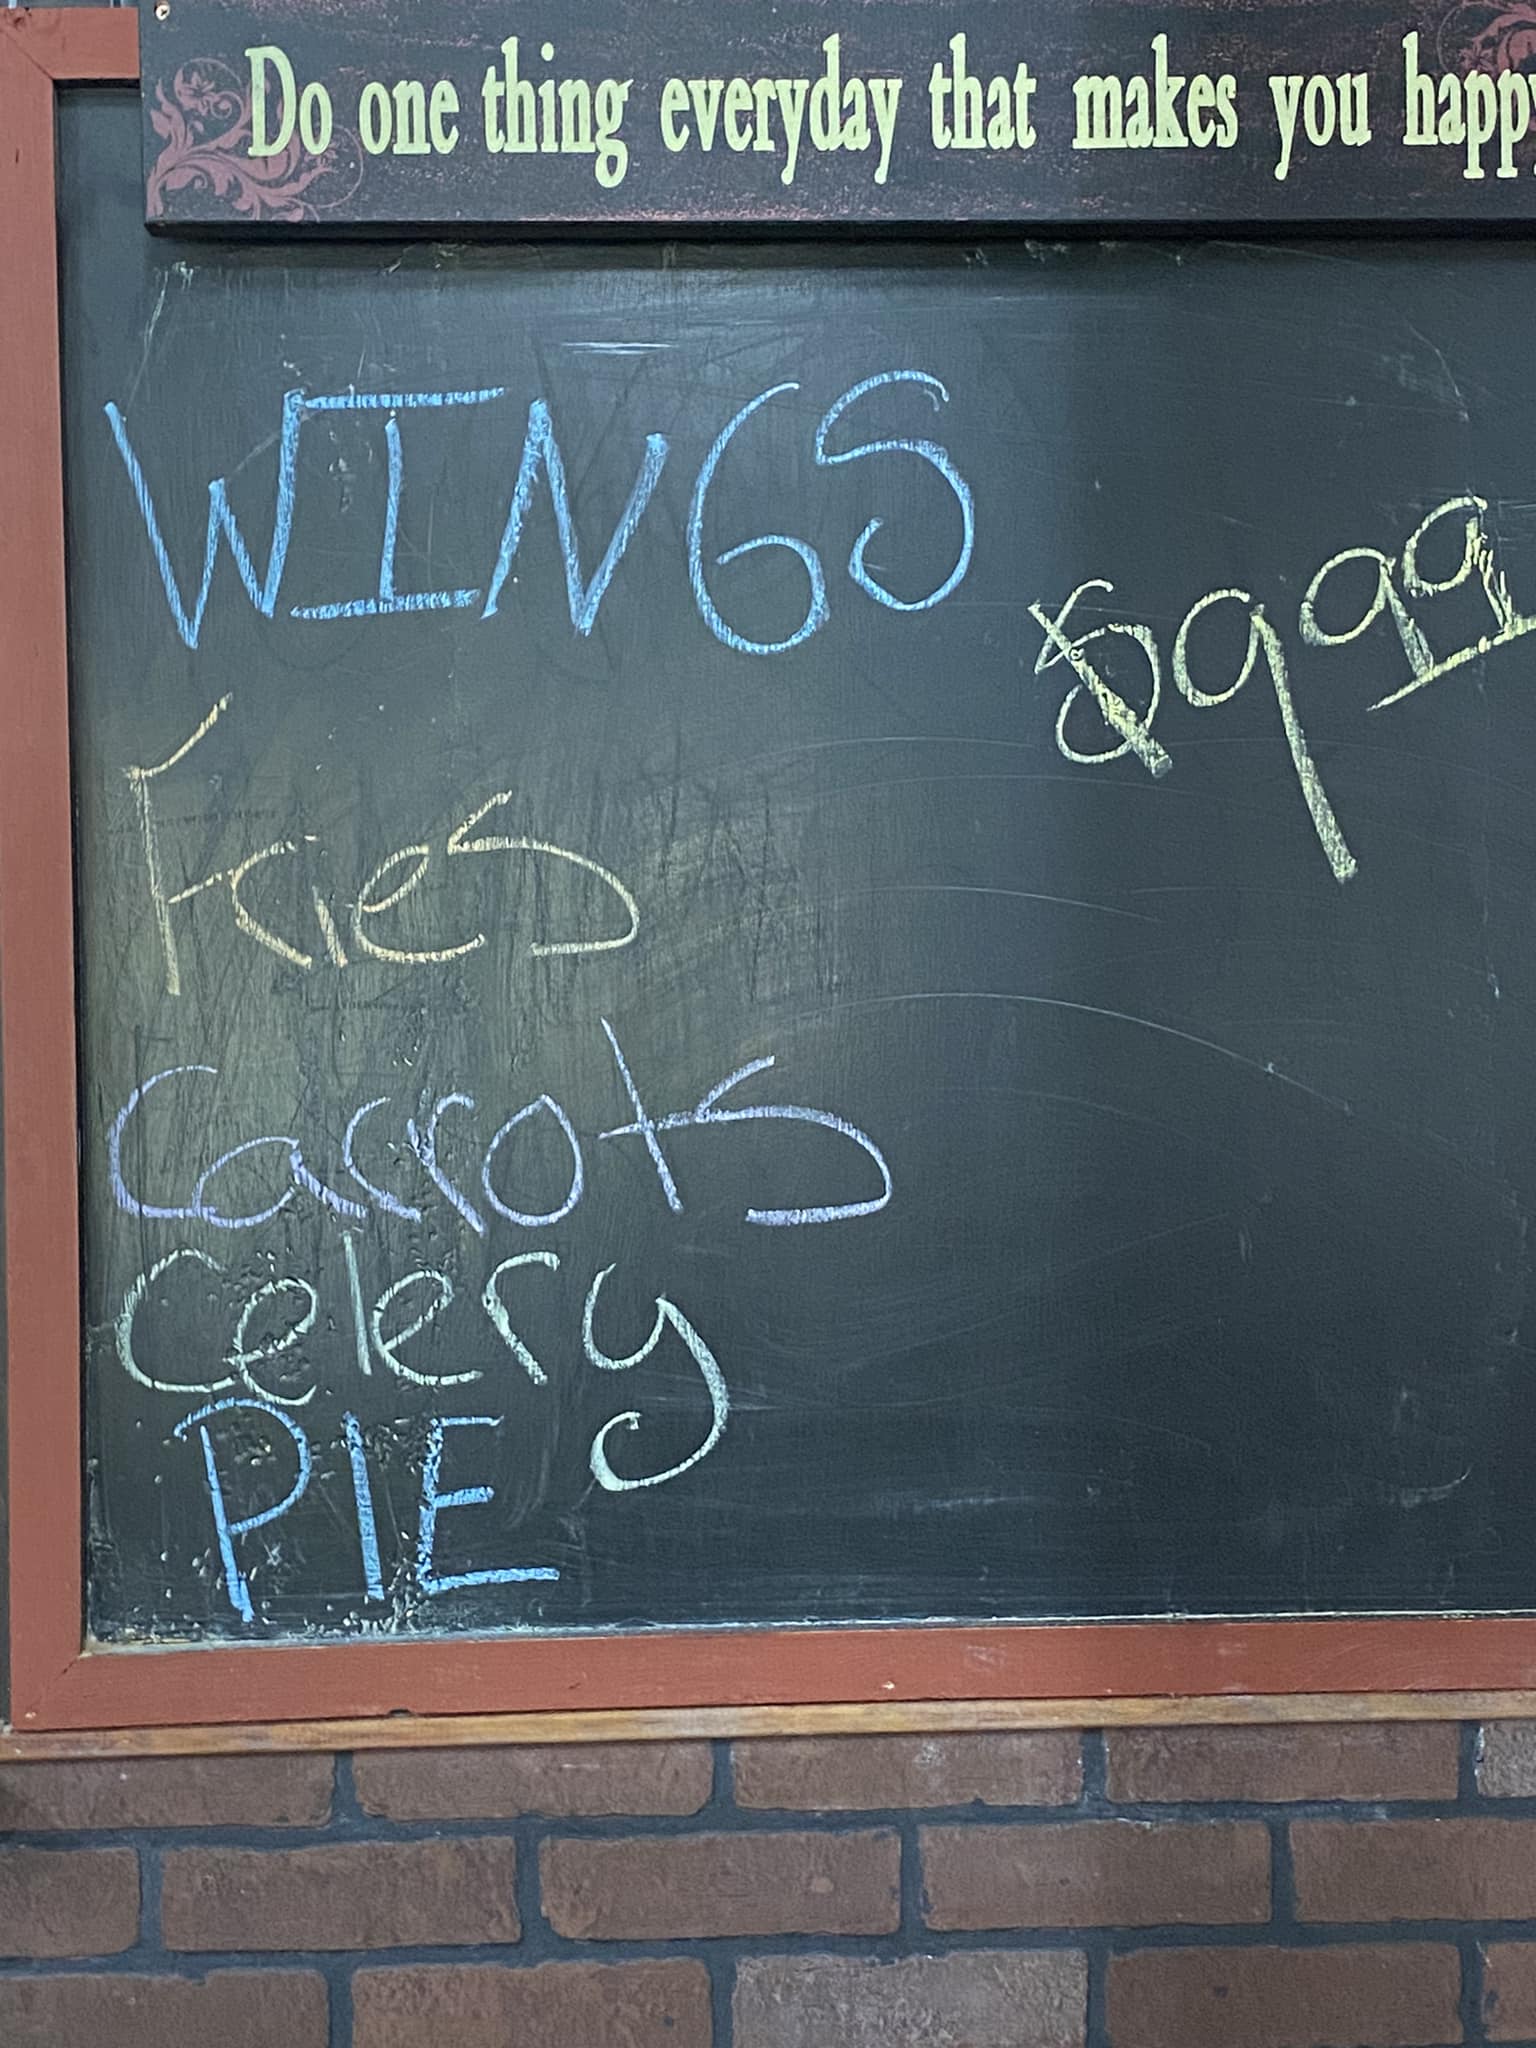 Do one thing everyday that makes you happy
WINGS
$9.99
Fries
Carrots
Celery
PIE